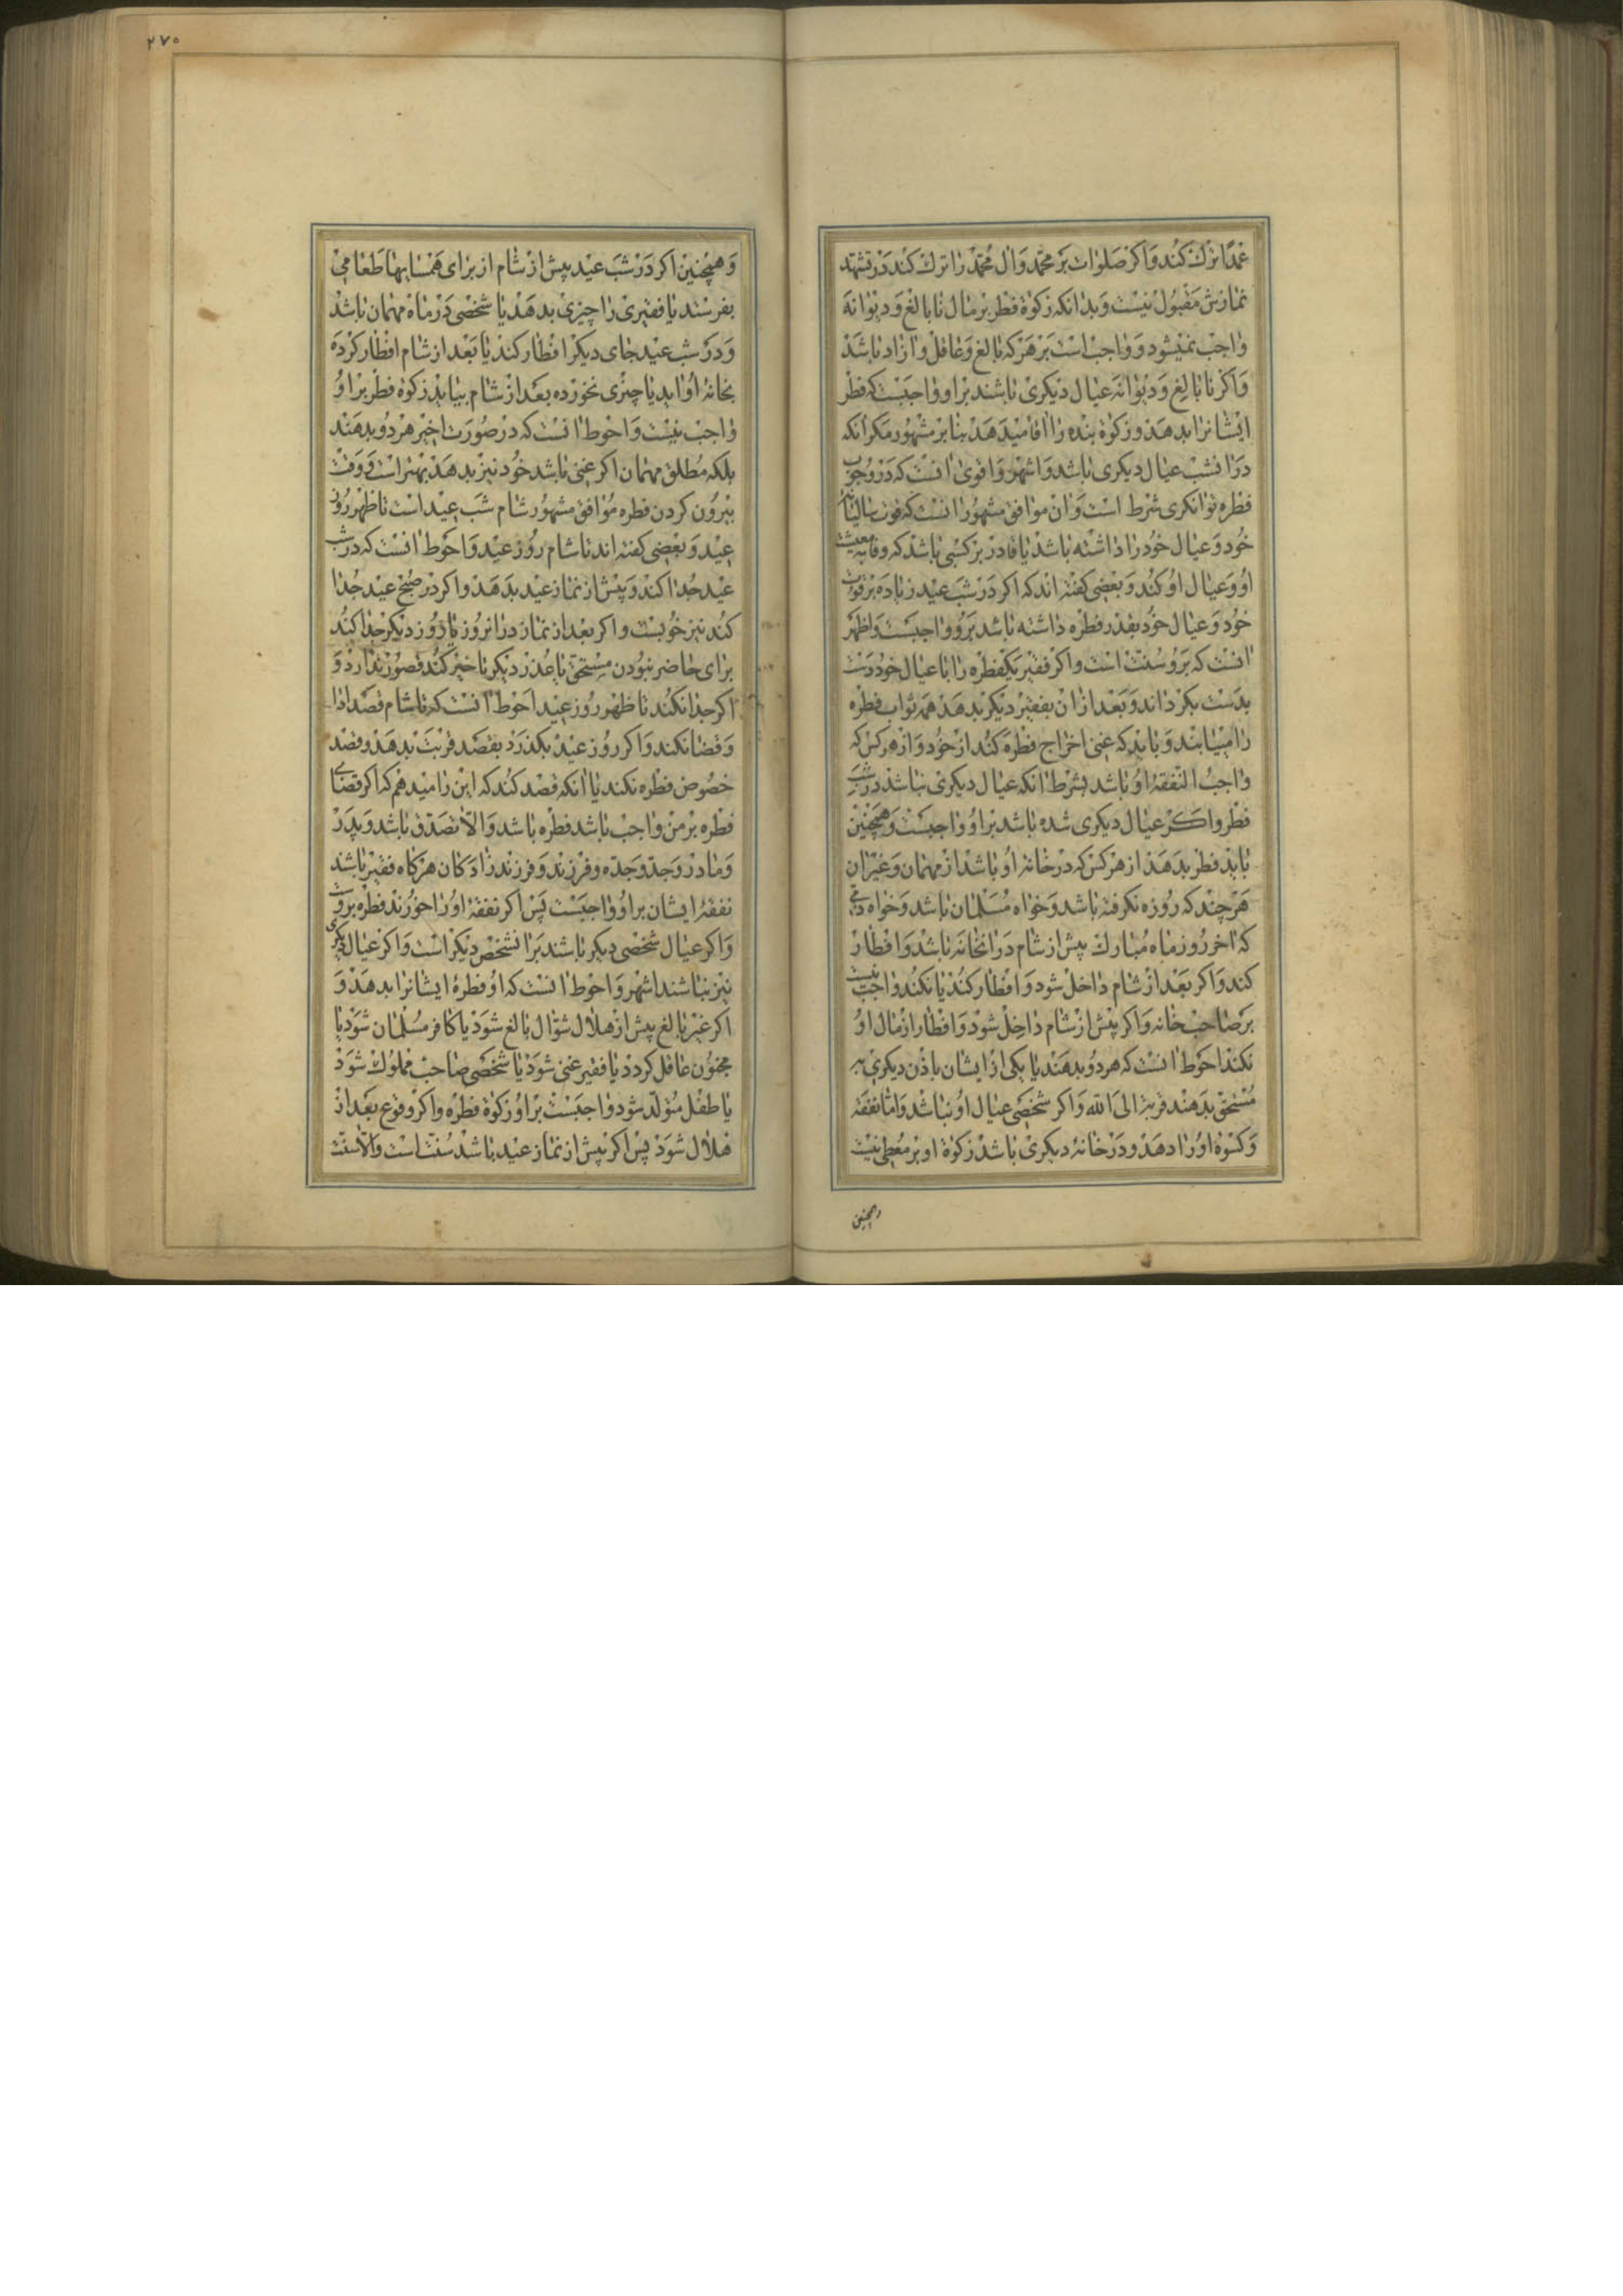 عمدًا ترک کند و اکر صلوات بر محمد و ال محمد را ترک کند در تشهد
نمازش مقبول نیست و بدانکه زکوة فطر بر مال نابالغ و دیوانه
واجب نمیشود و واجب است بر هر که بالغ و عاقل و ازاد باشد
و اکر نابالغ و دیوانه عیال دیکری باشند بر او واجبست که فطر
ایشانرا بدهد و زکوة بنده را اقا میدهد بنا بر مشهور مکر انکه
در انشب عیال دیکری باشد و اشهر و اقوی انست که در وجوب
فطره توانکری شرط است و ان موافق مشهور انست که قوت سالیانه
خود و عیال خود را داشته باشد یا قادر بر کسبی باشد که وفا به معیشت
او و عیال او کند و بعضی کفته اند که اکر در شب عید زیاده بر قوت
خود و عیال خود بقدر فطره داشته باشد بر او واجبست و اظهر
انست که بر او سنت است و اکر فقیر یکفطره را با عیال خود دست
بدست بکرداند و بعد از ان بفقیر دیکر بدهد همه ثواب فطره
را مییابند و باید که غنی اخراج فطره کند از خود و از هر کس که
واجب النفقه او باشد بشرط انکه عیال دیکری نباشد در شب
فطر و اکر عیال دیکری شده باشد بر او واجبست و همچنین
باید فطر بدهد از هر کس که در خانه او باشد از مهمان و غیر ان
هر چند که روزه نکرفته باشد و خواه مسلمان باشد و خواه ذمی
که اخر روز ماه مبارک پیش از شام در انخانه باشد و افطار
کند و اکر بعد از شام داخل شود و افطار کند یا نکند واجب نیست
بر صاحب خانه و اکر پیش از شام داخل شود و افطار از مال او
نکند احوط انست که هر دو بدهند یا یکی از ایشان باذن دیکری به
مستحق بدهند قربة الی الله و اکر شخصی عیال او نباشد و اما نفقه
و کسوة او را دهد و در خانه دیکری باشد زکوة او بر معطی نیست
و همچنین
۲۷۵
و همچنین اکر در شب عید پیش از شام از برای همسایها طعامی
بفرستد یا فقیری را چیزی بدهد یا شخصی در ماه مهمان باشد
و در شب عید جای دیکر افطار کند یا بعد از شام افطار کرده
بخانه او اید یا چیزی نخورده بعد از شام بیاید زکوة فطر بر او
واجب نیست و احوط انست که در صورت اخیر هر دو بدهند
بلکه مطلق مهمان اکر غنی باشد خود نیز بدهد بهتر است و وقت
بیرون کردن فطره موافق مشهور شام شب عید است تا ظهر روز
عید و بعضی کفته اند تا شام روز عید و احوط انست که در شب
عید جدا کند و پیش از نماز عید بدهد و اکر در صبح عید جدا
کند نیز خوبست و اکر بعد از نماز در انروز یا روز دیکر جدا کند
برای حاضر نبودن مستحق یا عذر دیکر تاخیر کند قصور ندارد و
اکر جدا نکند تا ظهر روز عید احوط انست که تا شام قصد ادا
و قضا نکند و اکر روز عید بکذرد بقصد قربت بدهد و قصد
خصوص فطره نکند یا انکه قصد کند که این را میدهم که اکر قضای
فطره بر من واجب باشد فطره باشد و الا تصدق باشد و پدر
و مادر و جد و جده و فرزند و فرزند زادکان هرکاه فقیر باشند
نفقه ایشان بر او واجبست پس اکر نفقه او را خورند فطره بر اوست
و اکر عیال شخصی دیکر باشد بر انشخص دیکر است و اکر عیال دیکری
نیز نباشند اشهر و احوط انست که او فطره ایشانرا بدهد و
اکر غیر بالغ پیش از هلال شوال بالغ شود یا کافر مسلمان شود یا
مجنون عاقل کردد یا فقیر غنی شود یا شخصی صاحب مملوک شود
یا طفل متولد شود واجبست بر او زکوة فطره و اکر وقوع بعد از
هلال شود پس اکر پیش از نماز عید باشد سنت است و الا سنت